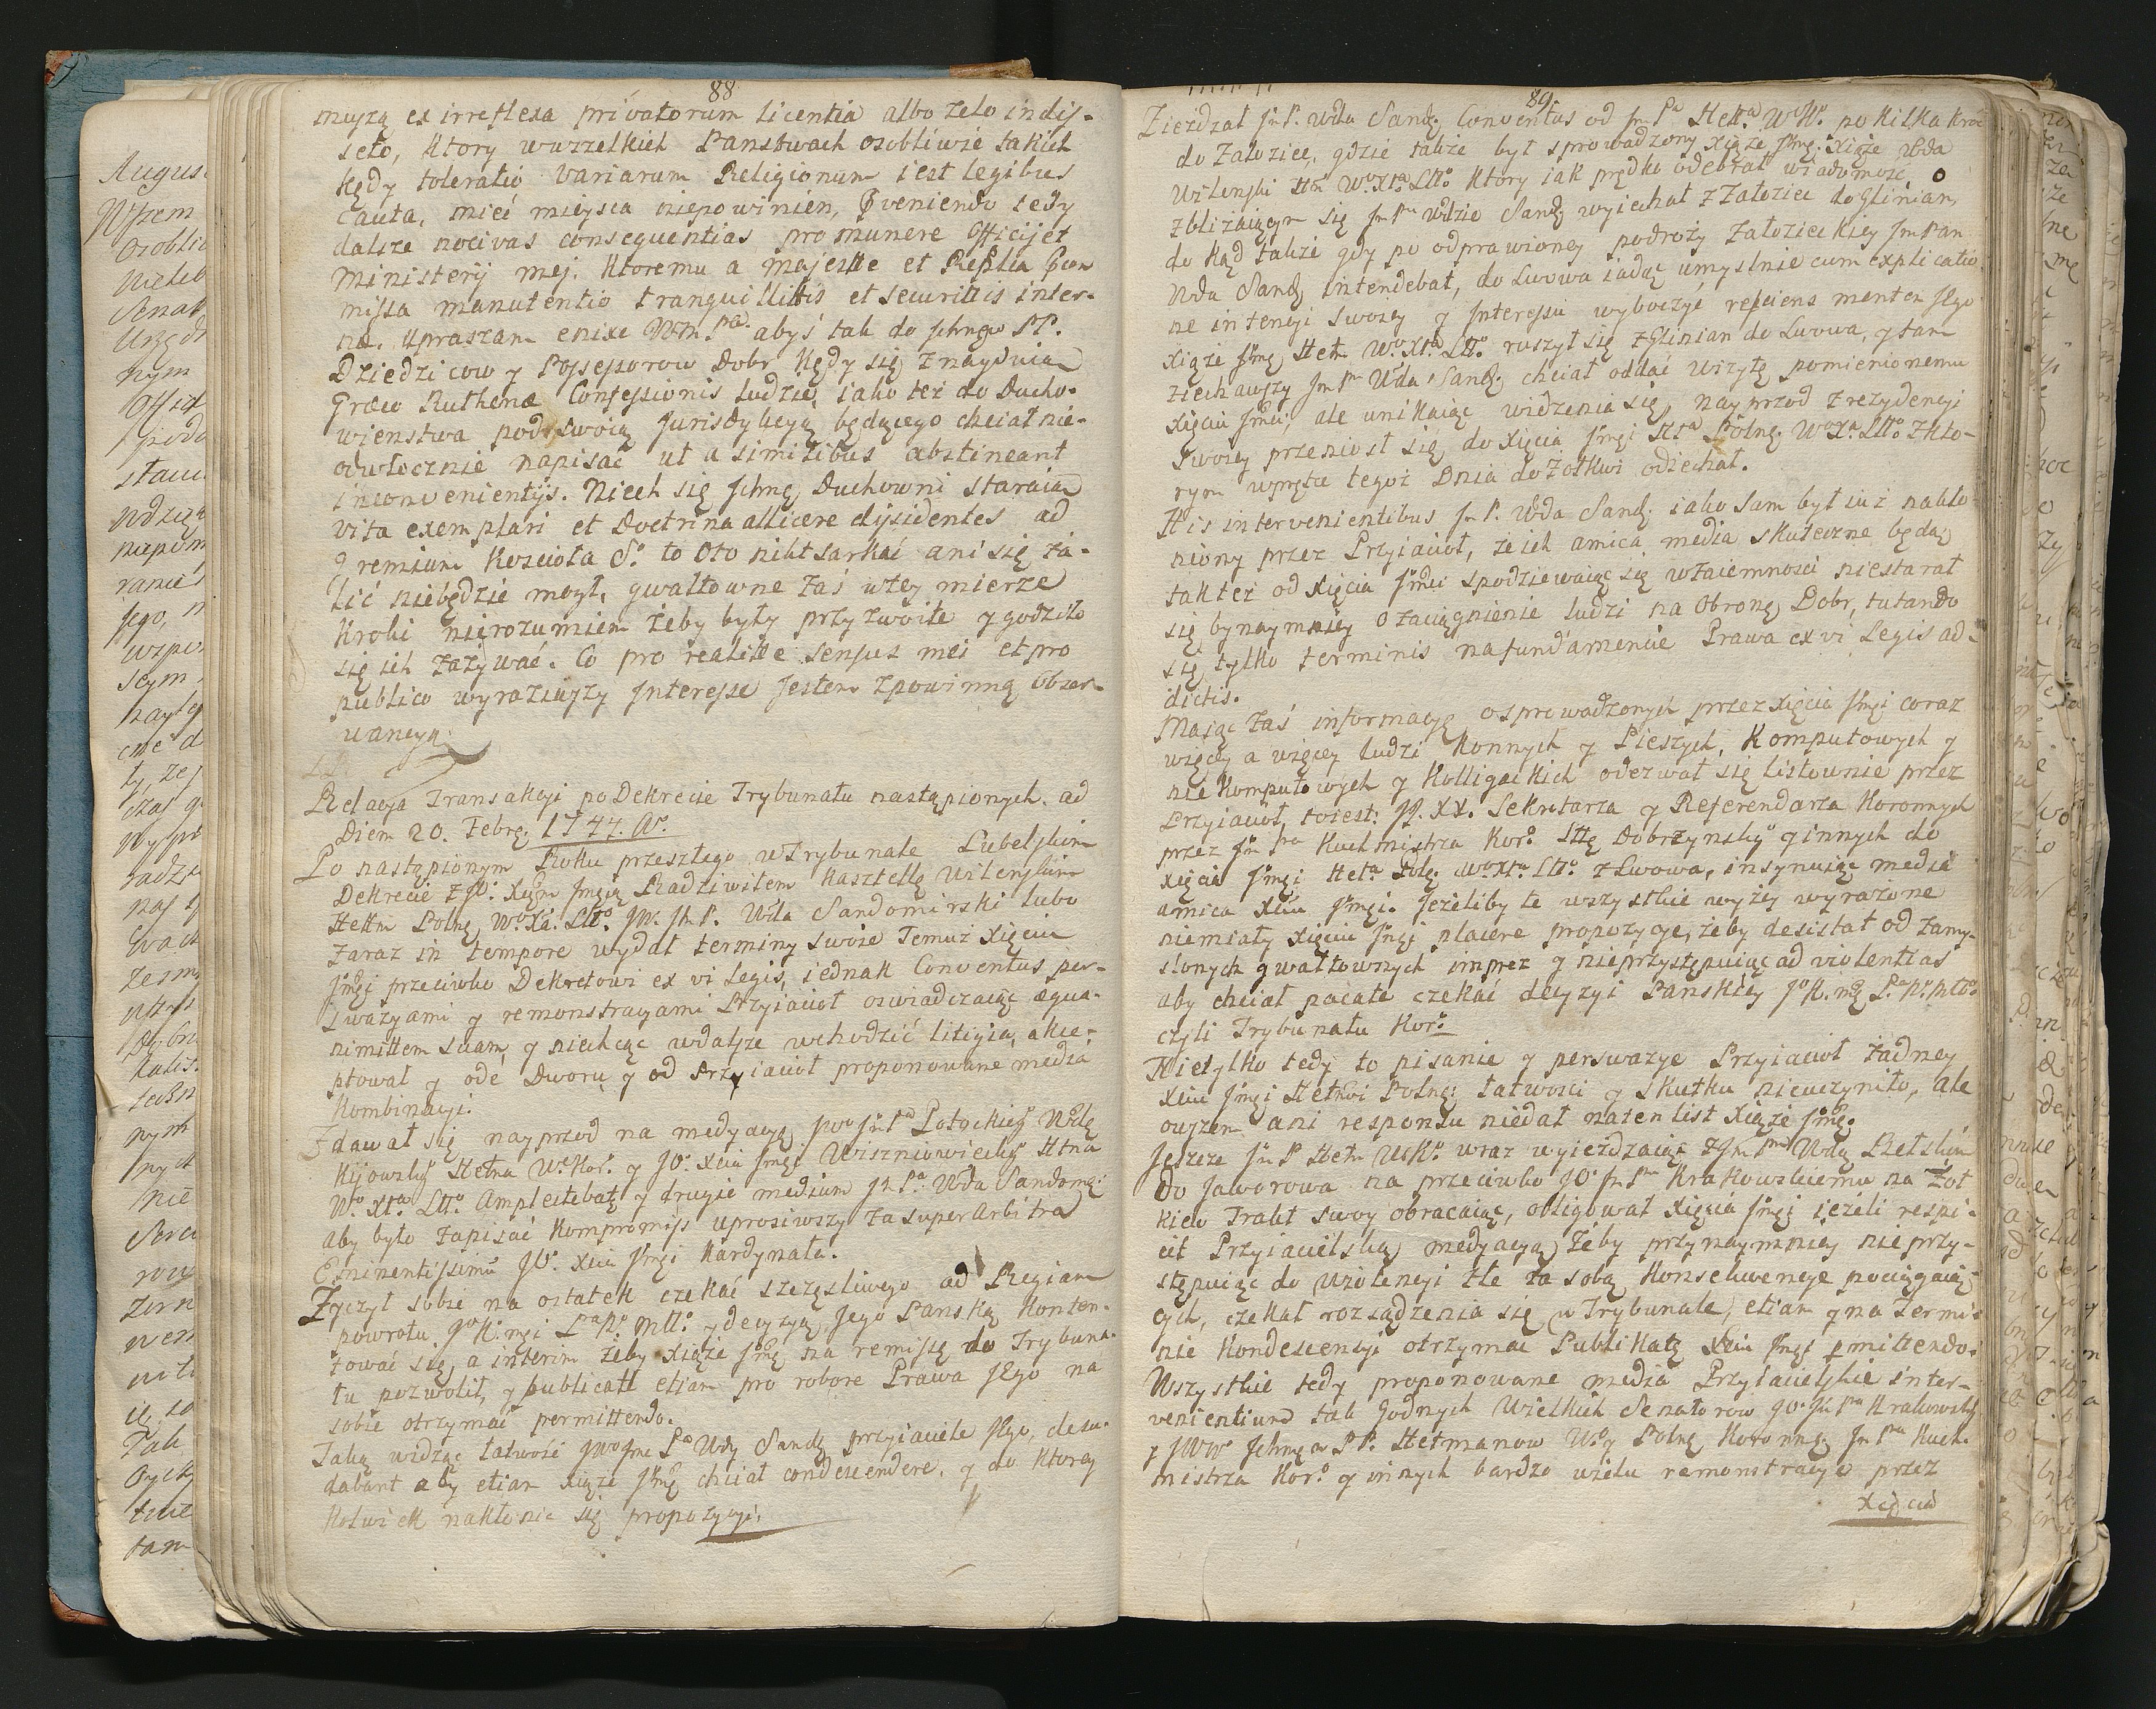 88
muszą ex irreflexa privatorum licentia albo zelo indis-
seto, ktory wwszelkich Panstwach osobliwie takich
kędy toleratio variarum Religionum iest legibus
cauta, mieć mieysca niepowinien, Pveniendo tedy
dalsze nocivas consequentias pro munere Officij et
Ministerij mej. Ktoremu a majestte et Replca
missa manutentio tranquillittis et securittis inter-
næ. Upraszam enixe Wm. Pa. abyś tak do Jchmciow PP.
Dziedzicow y Possessorow dobr kędy się znayduią
Græco Ruthenæ Confessionis ludzie, iako też do Ducho-
wienstwa pod swoią Jurisdykcyą będącego chciał nie-
odwłocznie napisać ut a similibus abstineant
inconvenientijs. Niech się Jchmę Duchowni staraią
vita exemplari et doctrina allicere dissidentes ad
gremium Kościoła S. to oto nikt sarkać ani się ża-
lić niebędzie mogł, gwałtowne zaś wtey mierze
kroki nierozumiem żeby były przyzwoite y godziło
się ich zażywać. Co pro realitte sensus mei et pro
publico wyraziwszy Jnteresse jestem zpowinną obser-
uancyą.
Relacya Transakcyi po Dekrecie Trybunału nastąpionych. ad
Diem 20. Febrę. 1744. Ao.
Po nastąpionym Roku przeszłego wTrybunale Lubelskim
Dekrecie z JO. Xcęm Jmcią Radziwiłem Kasztellę Wilenskim
Hettm Polnę Wo. Xa. Ltto. JW. Jm P. Wda Sandomirski lubo
zaraz in tempore wydał terminy swoie Temuż Xięciu
Jmci przeciwko Dekretowi ex vi Legis, iednak Conventus per-
swazyami y remonstracyami Przyiacioł oswiadczaiąc æqua-
nimittem suam, y niechcąc wdalsze wchodzić litigia, akce-
ptował y ode Dworu y od Przyiacioł proponowane media
Kombinacyi.
Zdawał się nayprzod na medyacyą Potockieg Wdę
Kijowskieg Hetma W. Kor. y JO. Xcia Jmci Wiszniowieckieg Htna
Wo. Xta. Ltto. Amplectebatę y drugie medium Jm Pa. Wda Sandomę:
aby było zapisać Kompromiss uprosiwszy za super Arbitra
Eminentissimũ JO. Xcia Jmci Kardynała.
Zyczył sobie na ostatek czekać szczęsliwego ad Regiam
powrotu Jo K. mci Pa No Mtto. y decyzyą Jego Panską Konten-
tować się, a interim żeby Xiąże Jmę na remissę do Trybuna-
łu pozwolił, y publicatt etiam pro robore Prawa Jego na
sobie otrzymać permittendo.
Taką widząc łatwość Jwo Jmc Pa Wdy Sandę przyiaciele Jego, desu-
dabant aby etiam Xiąże Jmę chciał condescendere, y do ktorey
kolwiek nakłonic się propozycyi.
89
Ziezdzał Jm P. Wda Sandę. Conventus od Jm Pa Hettę. W. Ko. po kilka kroc
do Załoziec, gdzie także był sprowadzony Xiąże Jmę. Xiąże Wda
Wilenski Htm Wo. Xta. Ltto. ktory iak prędko odebrał wiadomosc, o
zbliżaiącym się Jm Pnu Wdzie Sandę wyiechał zZałoziec do Glinian,
do kąd także gdy po odprawioney podroży Załozieckiey Jm Pan
Wda Sandę intendebat, do Lwowa iadąc umyslnie cum explicatio-
ne intencyi swoiey y Jnteressu wyboczyć resciens mentem Jego
Xiąże Jmę Hetm Wo. Xta. Ltto. ruszył się zGlinian do Lwowa, y tam
ziechawszy Jm Pn Wda Sandę. chciał oddać wizytę pomienionemu
Xięciu Jmci, ale unikaiąc widzenia się, nayprzod zrezydencyi
Swoiey przeniosł się do Xięcia Jmci Htta Polnę. Wo. Xa. Ltto. zkto-
rym wprętce tegoż Dnia do Żołkwi odiechał.
His intervenientibus Jm P. Wda Sandę. iako sam był iuż nakło-
niony przez Przyiacioł, że ich amica media skuteczne będą
tak też od Xięcia Jmci spodziewaiąc się wzaiemnosci niestarał
się bynaymniey o zaciągnienie ludzi na obronę Dobr, tutando
się tylko terminis na fundamencie Prawa ex vi Legis ad-
dictis.
Maiąc zaś informacyę osprowadzonych przez Xięcia Jmci coraz
więcey a więcey ludzi konnych y Pieszych, Komputowych y
niekomputowych y Kolligackich odezwał się listownie przez
Przyiacioł, toiest: JP. XX. Sekretarza y Referendarza Koronnych
przez Jm Pa Kuchmistrza Kor. Sttę Dobrzynskieg y innych do
Xięcia Jmci Heta. Polę. Wo Xta. Ltto. z Lwowa, insynuiąc media
amica Xciu Jmci. Jeżeliby te wszystkie wyżey wyrażone
niemiały Xięciu Jmci placere propozycye, żeby desistał od zamy-
slonych gwałtownych imprez y nieprzystępuiąc ad violentias
aby chciał pacate czekać decyzyi Panskiey Jo K. mę Pa No Mtto.
czyli Trybunału Koro.
Nietylko tedy to pisanie y perswazye Przyiacioł żadney
Xcia Jmci Hetmi Polnę: łatwosci y skutku nieuczyniło, ale
owszem ani responsu niedał naten list Xiąże Jmę.
Jeszcze Jm P Hetm W. Ko. wraz wyieżdzaiąc zJm Pnem Wdą Bełzkim
Do Jaworowa na przeciwko JO Jm Pnu Krakowskiemu na Żoł
kiew Trakt swoy obracaiąc, obligował Xięcia Jmci ieżeli respi-
cit Przyiacielską medyacyą żeby przynaymniey nieprzy-
stępuiąc do wiolencyi złe za sobą konsekwencye pociągaią-
cych, czekał rozsądzenia się w Trybunale, etiam y na termi-
nie kondescensyi otrzymac Publikatę Xciu Jmci pmittendo.
Wszystkie tedy proponowane media Przyiacielskie inter-
venientiund tak godnych Wielkich Senatorow JO. Jm Pna Krakowskieg
y JWWo Jchmcow PP. Hetmanow W. y Polnę Koronnę: Jm Pna Kuch-
mistrza Koro. y innych bardzo wielu remonstracye przez
Xięcia